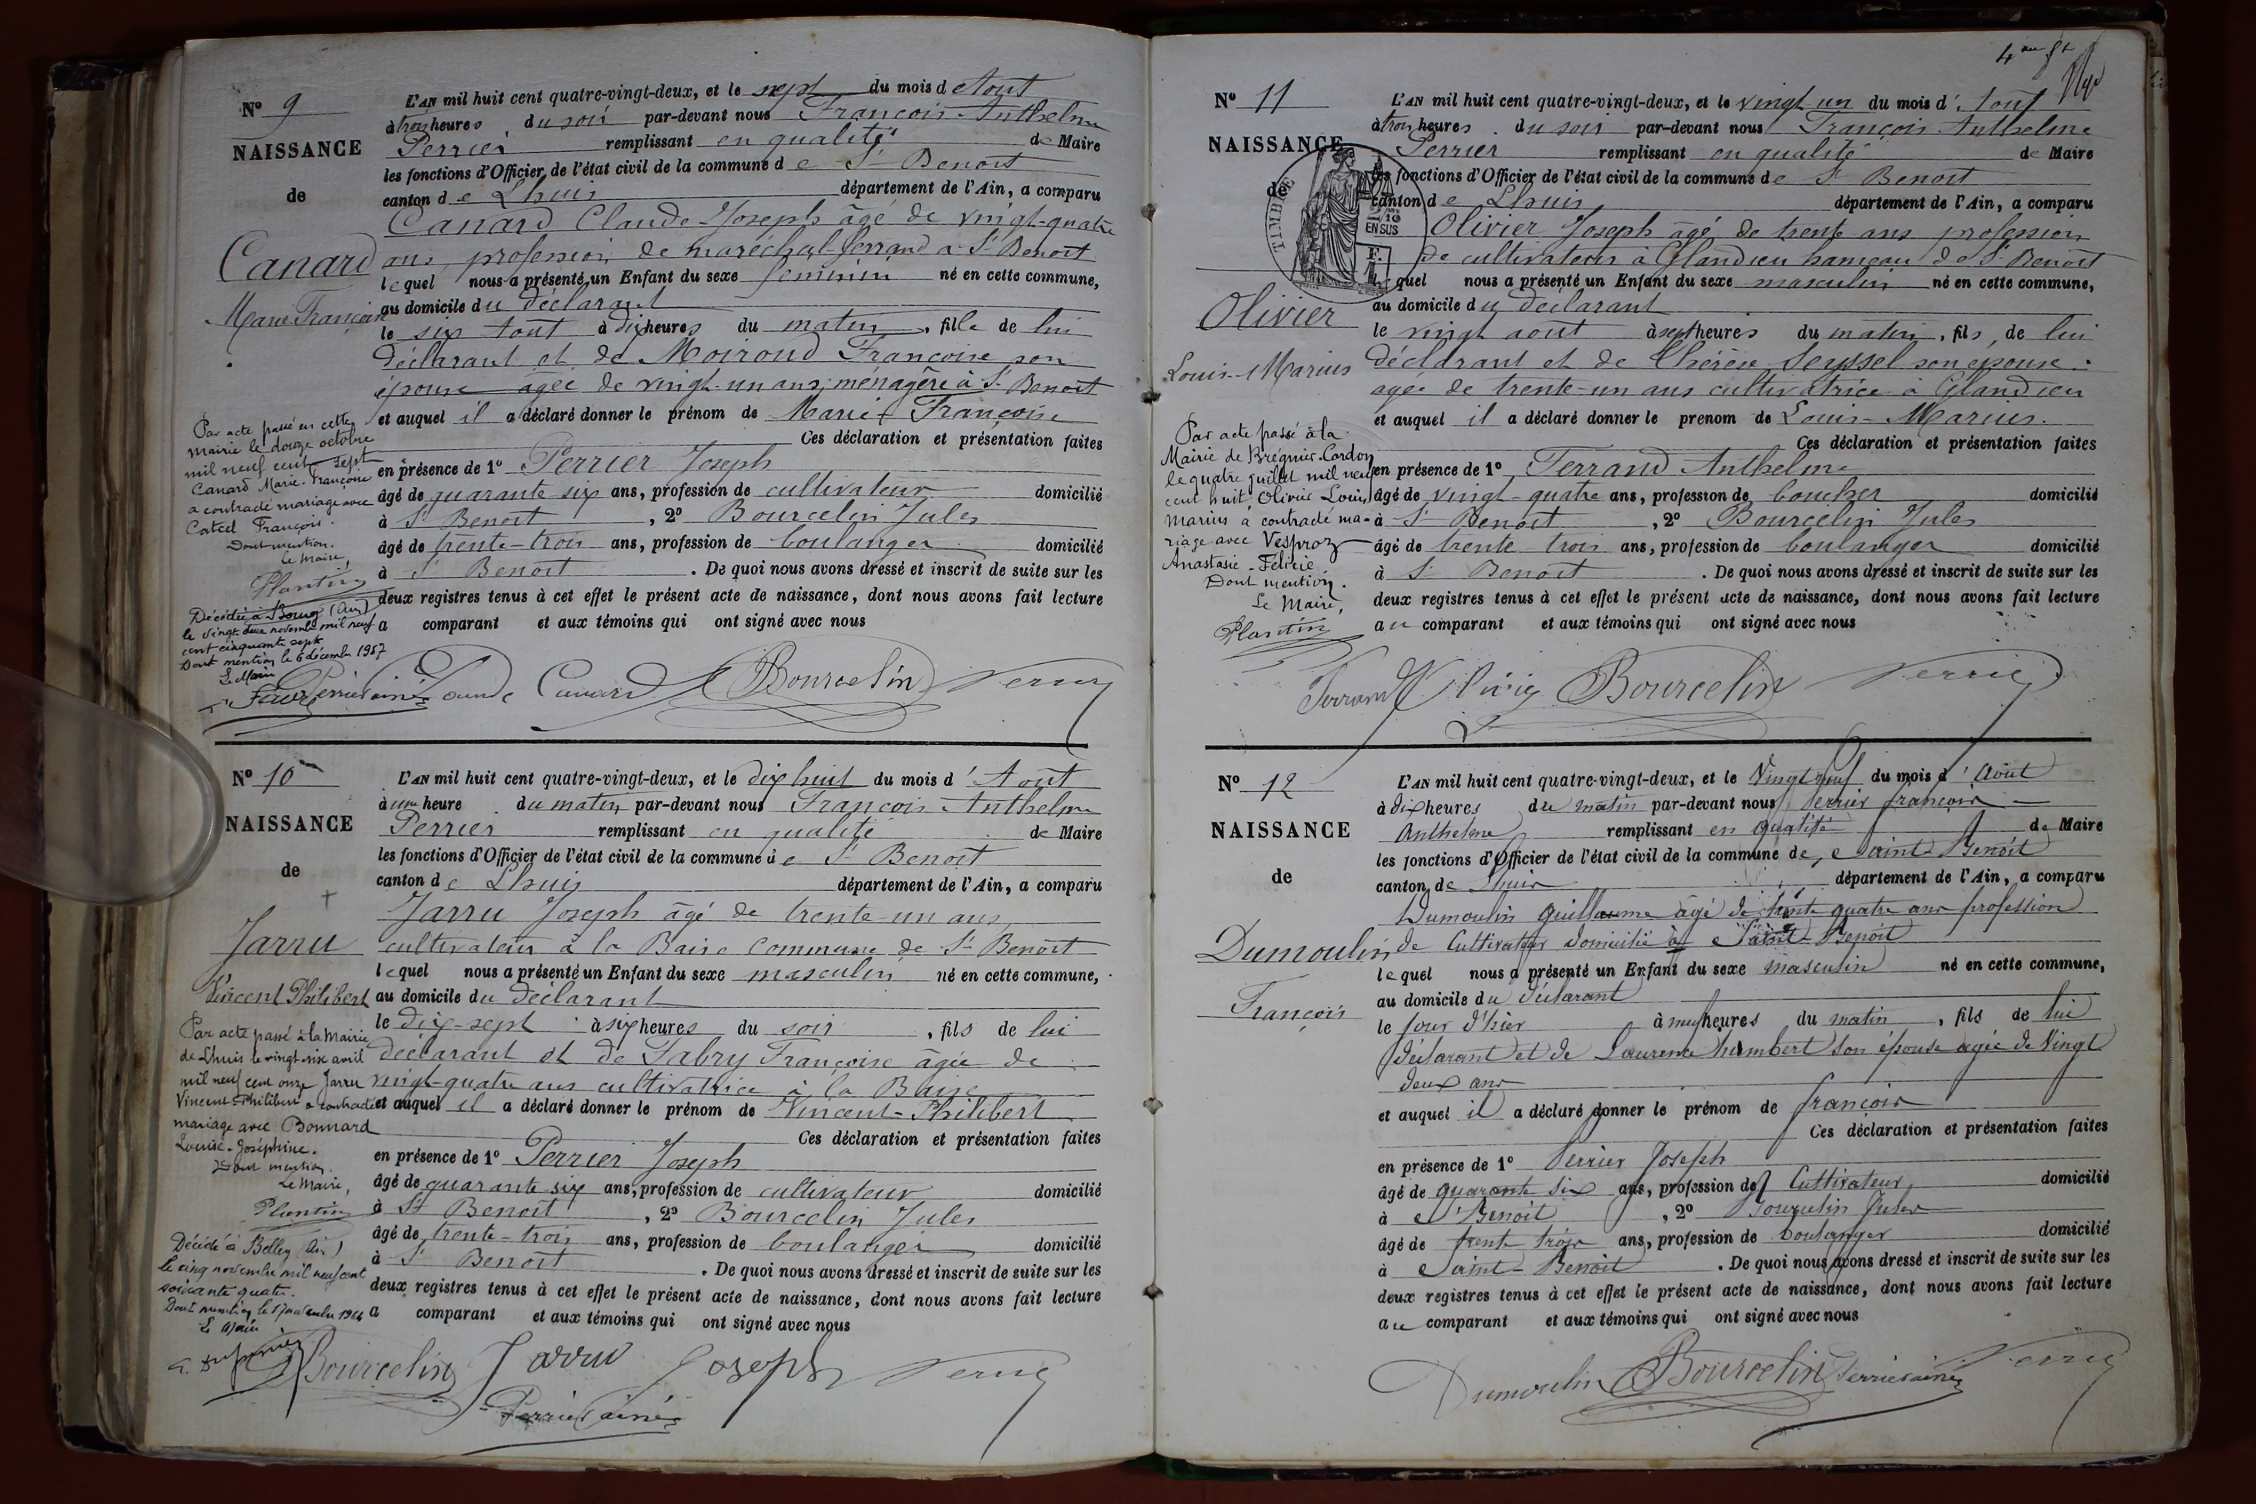 Nº 9
NAISSANCE
de
Canard
Marie Françoise
Par acte passé en cette
Mairie le douze octobre
mil neuf cent sept
Canard Marie-Françoise
a contracté mariage avec
Catcel François.
Dont mention.
Le Maire,
Plantin
Décédée à Bourg (Ain)
le vingt deux novembre mil neuf
cent cinquante sept
Dont mention le 6 décembre 1957
Le Maire
L'AN mil huit cent quatre-vingt-deux, et le sept du mois d Août
à trois heures du soir par-devant nous François Anthelme
Perrier remplissant en qualité de Maire
les fonctions d'Officier de l'état civil de la commune de St Benoit
canton de Lhuis département de l'Ain, a comparu
Canard Claude Joseph âgé de vingt-quatre
ans, profession de maréchal ferrand à St Benoit
lequel nous a présenté un Enfant du sexe féminin né en cette commune,
au domicile du déclarant
le six Août à dix heures du matin, fille de lui
déclarant et de Moiroud Françoise son
épouse âgée de vingt-un ans, ménagère à St Benoit
et auquel il a déclaré donner le prénom de Marie-Françoise
Ces déclaration et présentation faites
en présence de 1º Perrier Joseph
âgé de quarante six ans, profession de cultivateur domicilié
à St Benoit, 2º Bourcelin Jules
âgé de trente-trois ans, profession de boulanger domicilié
à St Benoit. De quoi nous avons dressé et inscrit de suite sur les
deux registres tenus à cet effet le présent acte de naissance, dont nous avons fait lecture
a comparant et aux témoins qui ont signé avec nous
Perrier ainé Claude Canard Bourcelin Perrier
Nº 10
NAISSANCE
de
Jarru
Vincent Philibert
Par acte passé à la Mairie
de Lhuis le vingt-six avril
mil neuf cent onze Jarru
Vincent-Philibert a contracté
mariage avec Bonnard
Louise-Joséphine.
Dont mention.
Le Maire,
Plantin
Décédé à Belley (Ain)
le cinq novembre mil neuf cent
soixante quatre.
Dont mention le novembre 1964
Le Maire
L'AN mil huit cent quatre-vingt-deux, et le dix huit du mois d'Août
à une heure du matin par-devant nous François Anthelme
Perrier remplissant en qualité de Maire
les fonctions d'Officier de l'état civil de la commune de St Benoit
canton de Lhuis département de l'Ain, a comparu
Jarru Joseph âgé de trente-un ans,
cultivateur à la Baise commune de St Benoit
lequel nous a présenté un Enfant du sexe masculin né en cette commune,
au domicile du déclarant
le dix-sept à six heures du soir, fils de lui
déclarant et de Fabry Françoise âgée de
vingt-quatre ans cultivatrice à la Baise
et auquel il a déclaré donner le prénom de Vincent-Philibert
Ces déclaration et présentation faites
en présence de 1º Perrier Joseph
âgé de quarante six ans, profession de cultivateur domicilié
à St Benoit, 2º Bourcelin Jules
âgé de trente-trois ans, profession de boulanger domicilié
à St Benoit. De quoi nous avons dressé et inscrit de suite sur les
deux registres tenus à cet effet le présent acte de naissance, dont nous avons fait lecture
a comparant et aux témoins qui ont signé avec nous
Bourcelin Jarru Joseph Perrier
Perrier ainé
Nº 11
NAISSANCE
de
TIMBRE
2/10
EN SUS
Olivier
Louis-Marius
Par acte passé à la
Mairie de Brégnier-Cordon
le quatre juillet mil neuf
cent huit, Olivier Louis
Marius a contracté ma-
riage avec Vesproz
Anastasie-Félicie
Dont mention.
Le Maire,
Plantin
L'AN mil huit cent quatre-vingt-deux, et le vingt un du mois d'Août
à trois heures du soir par-devant nous François Anthelme
Perrier remplissant en qualité de Maire
les fonctions d'Officier de l'état civil de la commune de St Benoit
canton de Lhuis département de l'Ain, a comparu
Olivier Joseph âgé de trente ans profession
de cultivateur à Glandieu hameau de St Benoit
lequel nous a présenté un Enfant du sexe masculin né en cette commune,
au domicile du déclarant
le vingt août à sept heures du matin, fils, de lui
déclarant et de Thérèse Seyssel son épouse.
agée de trente-un ans cultivatrice à Glandieu
et auquel il a déclaré donner le prenom de Louis-Marius.
Ces déclaration et présentation faites
en présence de 1º Ferrand Anthelme
âgé de vingt-quatre ans, profession de boucher domicilié
à St Benoit, 2º Bourcelin Jules
âgé de trente trois ans, profession de boulanger domicilié
à St Benoit. De quoi nous avons dressé et inscrit de suite sur les
deux registres tenus à cet effet le présent acte de naissance, dont nous avons fait lecture
au comparant et aux témoins qui ont signé avec nous
Ferrand Olivier Bourcelin Perrier
Nº 12
NAISSANCE
de
Dumoulin
François
L'AN mil huit cent quatre-vingt-deux, et le Vingt neuf du mois d'Août
à dix heures du matin par-devant nous Perrier françois
Anthelme remplissant en qualité de Maire
les fonctions d'Officier de l'état civil de la commune de Saint-Benoit
canton de Lhuis département de l'Ain, a comparu
Dumoulin Guillaume âgé de trente quatre ans profession
de Cultivateur domicilié à Saint-Benoit
lequel nous a présenté un Enfant du sexe masculin né en cette commune,
au domicile du déclarant
le Jour d'hier à neuf heures du matin, fils de lui
déclarant et de Laurence humbert son épouse agée de Vingt
deux ans
et auquel il a déclaré donner le prénom de françois
Ces déclaration et présentation faites
en présence de 1º Perrier Joseph
âgé de quarante six ans, profession de Cultivateur domicilié
à St Benoit, 2º Bourcelin Jules
âgé de trente trois ans, profession de boulanger domicilié
à Saint-Benoit. De quoi nous avons dressé et inscrit de suite sur les
deux registres tenus à cet effet le présent acte de naissance, dont nous avons fait lecture
au comparant et aux témoins qui ont signé avec nous
Dumoulin Bourcelin Perrier ainé Perrier